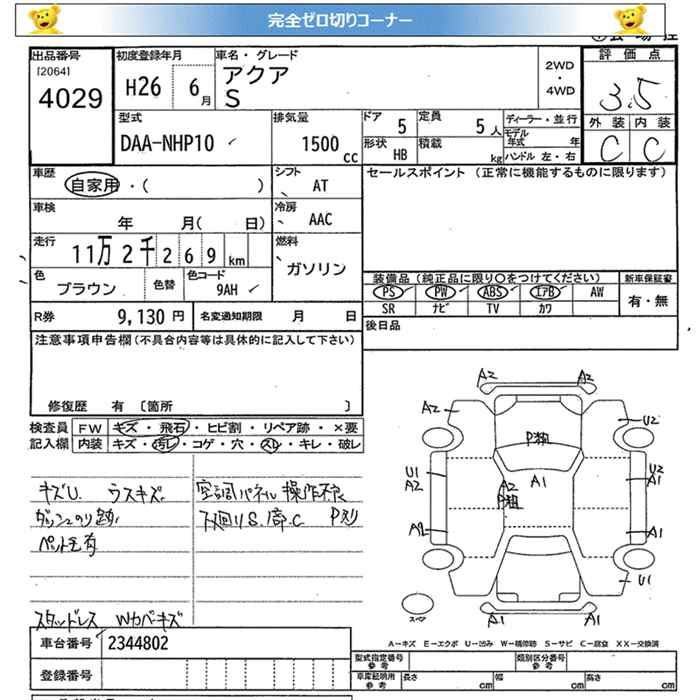 完全ゼロ切りコーナー
出品番号
[2064]
4029
初度登録年月
H26 6月
車名・グレード
アクア
S
2WD
・
4WD
評価点
3.5
外装 内装
C C
型式
DAA-NHP10
排気量
1500cc
ドア 5
定員 5人
形状 HB
積載 kg
ディーラー・並行
モデル年式 年
ハンドル 左・右
車歴
自家用・( )
シフト
AT
セールスポイント (正常に機能するものに限ります)
車検
年 月( 日)
冷房
AAC
走行
11万2千269km
燃料
ガソリン
色
ブラウン
色替
色コード
9AH
装備品 (純正品に限り○をつけてください)
PS PW ABS エアB AW
SR ナビ TV カワ
新車保証書
有・無
R券 9,130円
名変通知期限 月 日
後日品
注意事項申告欄 (不具合内容等は具体的に記入して下さい)
修復歴 有 〔箇所 〕
検査員記入欄
FW キズ・飛石・ヒビ割・リペア跡・×要
内装 キズ・汚れ・コゲ・穴・スレ・キレ・破レ
キズU. ウスキズ.
ペット毛有
空調パネル操作不良
下廻りS.腐.C
スタッドレス Wカバーキズ
A2 A2
A2 U2
P粗
A1
U1
A2
A2
P粗
U2
A1
A1
U1
A1 A1
スペア
A−キズ E−エクボ U−凹み W−補修跡 S−サビ C−腐食 XX−交換済
車台番号 2344802
登録番号
型式指定番号
参考
類別区分番号
参考
車庫証明用
参考
長さ cm
幅 cm
高さ cm